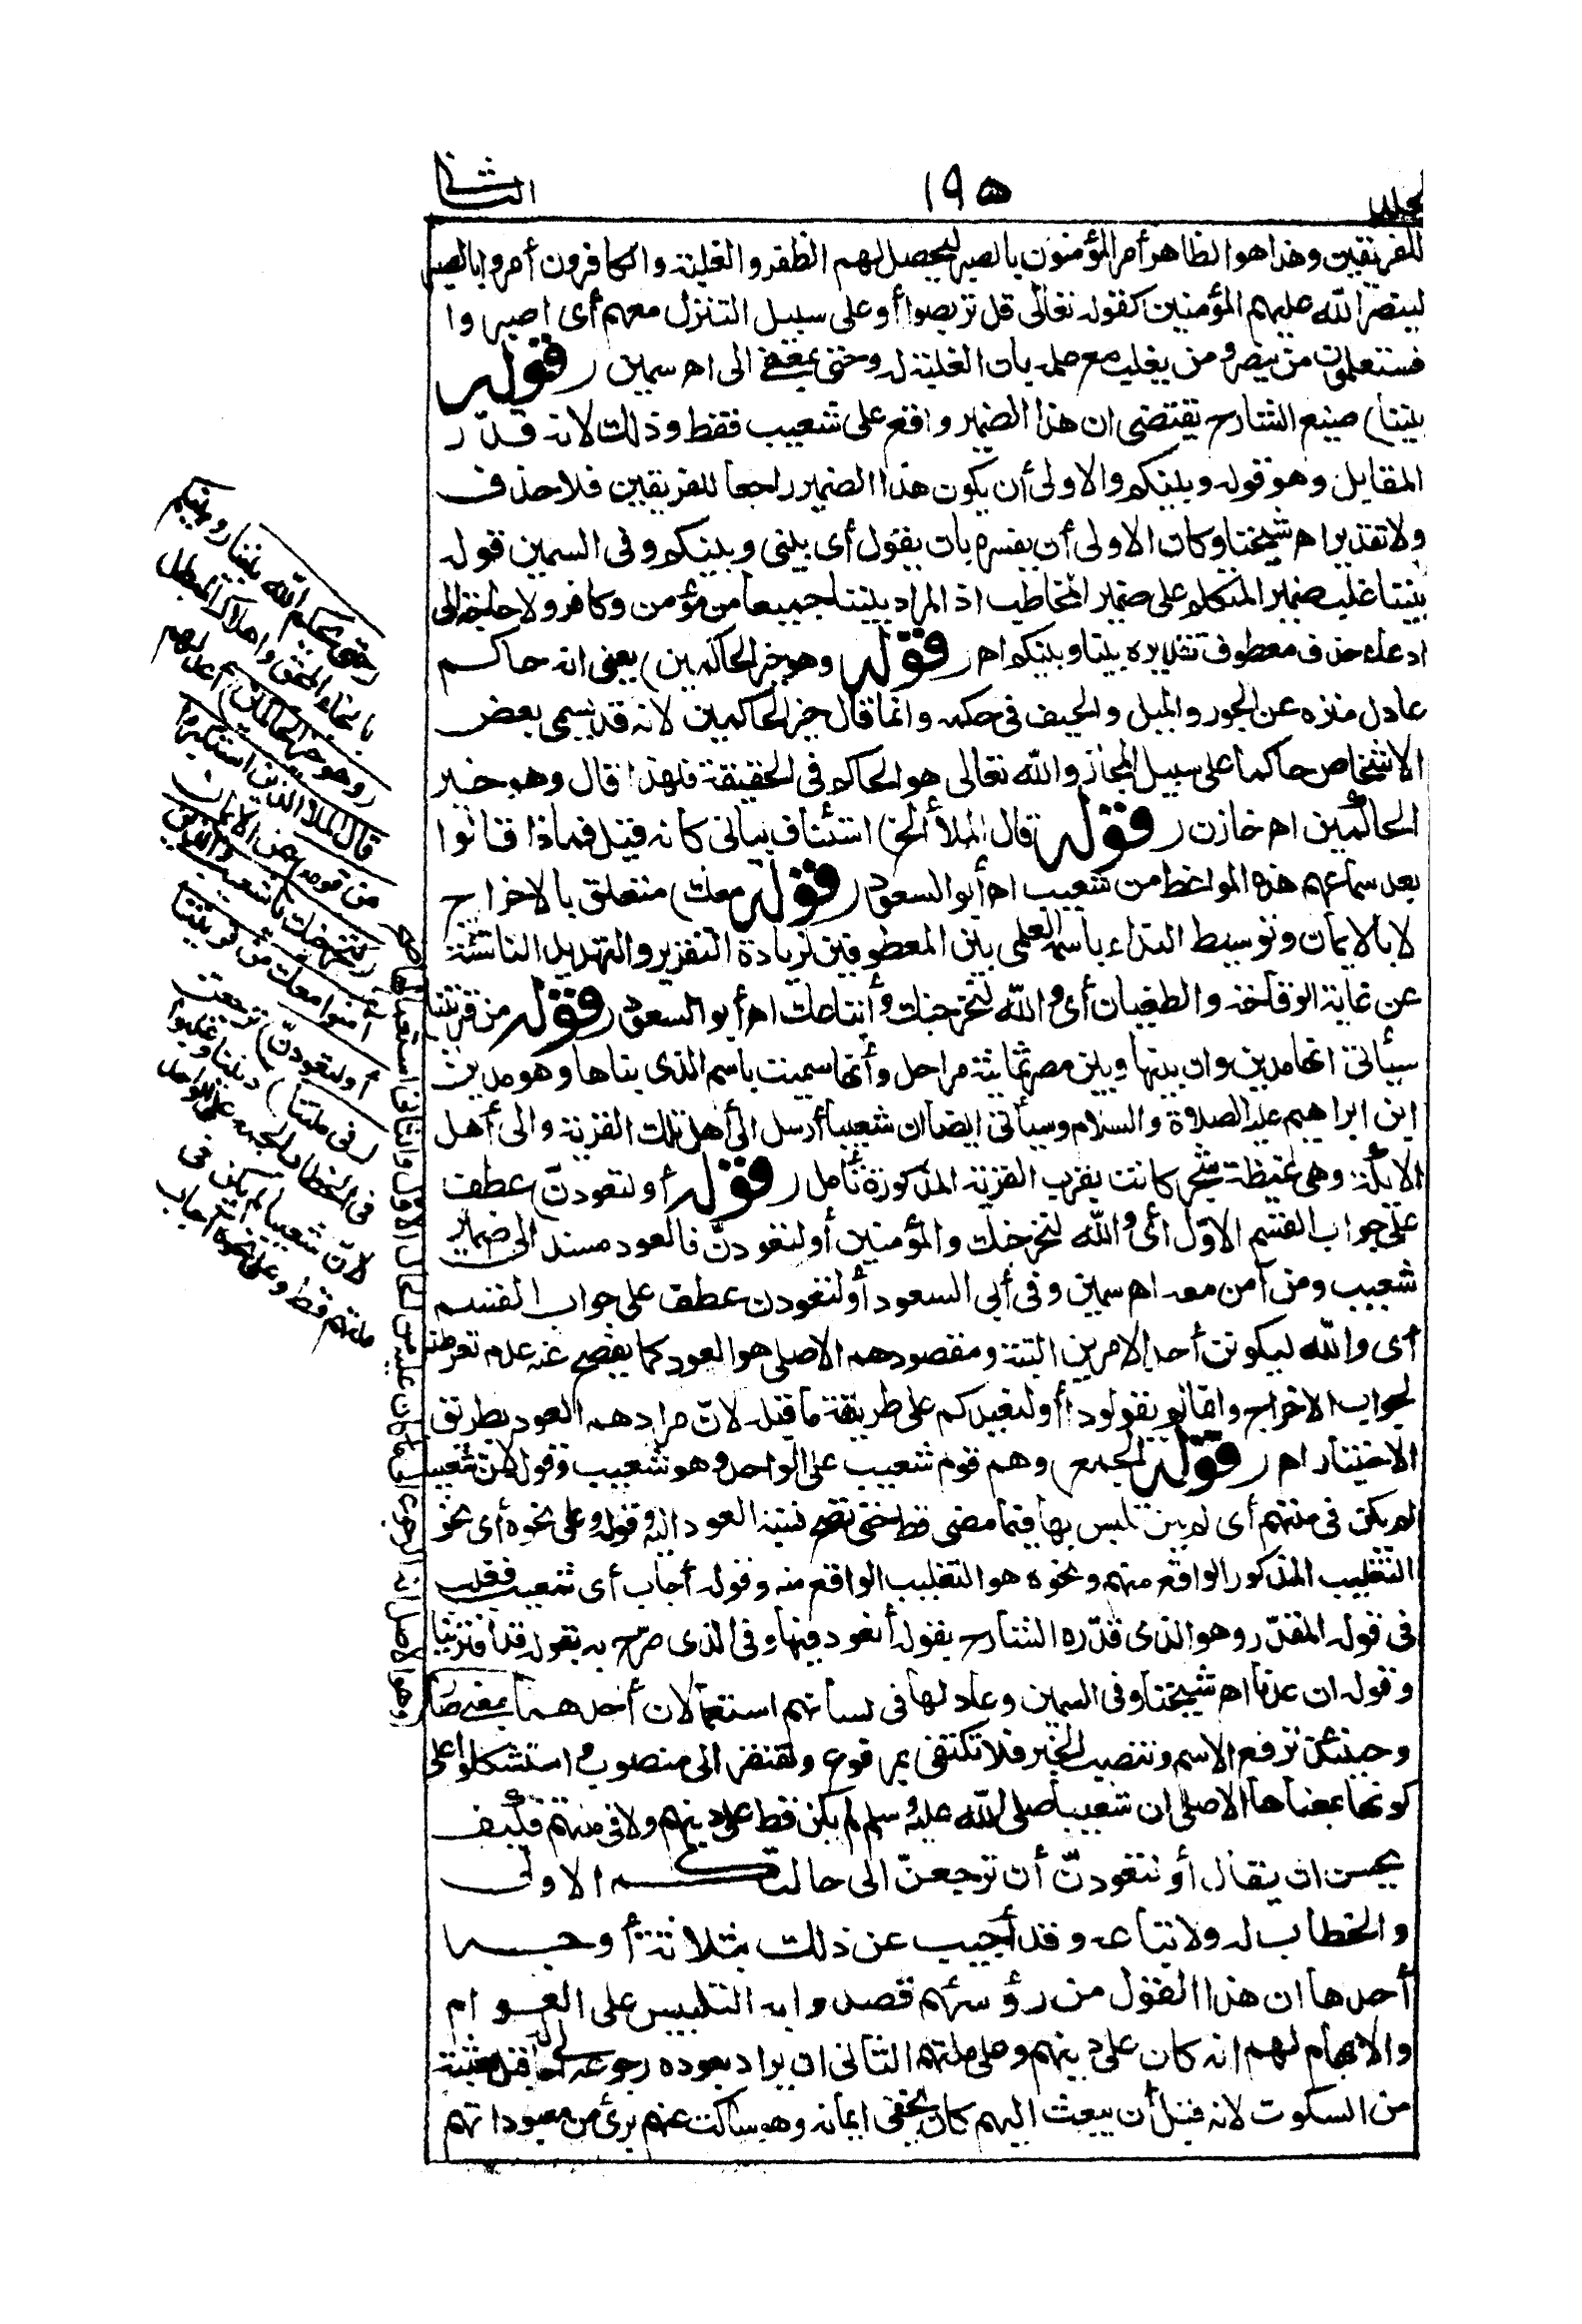 مجلد
١٩٥
الثانى
للفريقين وهذا هو الظاهر أمر المؤمنون بالصبر ليحصل لهم الظفر والغلبة والكافرون أمروا بالصبر
لينصر الله عليهم المؤمنين كقوله تعالى قل تربصوا أو على سبيل التنزل معهم أى اصبروا
فستعلمون من ينصر ومن يغلب مع علمه بان الغلبة له وحتى بمعنى الى اهـ سمين (قوله
بيننا) صنيع الشارح يقتضى ان هذا الضمير واقع على شعيب فقط وذلك لانه قدّر
المقابل وهو قوله وبينكم والاولى أن يكون هذا الضمير راجعا للفريقين فلا حذف
ولا تقدير اهـ شيخنا وكان الاولى أن يفسره بان يقول أى بينى وبينكم وفى السمين قوله
بيننا غلب ضمير المتكلم على ضمير المخاطب اذ المراد بيننا جميعا من مؤمن وكافر ولا حاجة الى
ادعاء حذف معطوف تقديره بيننا وبينكم اهـ (قوله وهو خير الحاكمين) يعنى انه حاكم
عادل منزه عن الجور والميل والحيف فى حكمه وانما قال خير الحاكمين لانه قد يسمى بعض
الاشخاص حاكما على سبيل المجاز والله تعالى هو الحاكم فى الحقيقة فلهذا قال وهو خير
الحاكمين اهـ خازن (قوله قال الملأ الخ) استئناف بيانى كانه قيل فماذا قالوا
بعد سماعهم هذه المواعظ من شعيب اهـ أبو السعود (قوله معك) متعلق بالاخراج
لا بالايمان وتوسيط النداء باسمه العلمى بين المعطوفين لزيادة التقرير والتهديد الناشئة
عن غاية الوقاحة والطغيان أى والله لنخرجنك وأتباعك اهـ أبو السعود (قوله من قريتنا)
سيأتى انها مدين وان بينها وبين مصر ثمانية مراحل وأنها سميت باسم الذى بناها وهو مدين
ابن ابراهيم عليه الصلاة والسلام وسيأتى ايضا ان شعيبا أرسل الى أهل تلك القرية والى أهل
الايكة وهى غيظة شجر كانت بقرب القرية المذكورة تأمل (قوله أو لتعودنّ) عطف
على جواب القسم الاوّل أى والله لنخرجنك والمؤمنين أو لتعودنّ فالعود مسند الى ضمير
شعيب ومن آمن معه اهـ سمين وفى أبى السعود أو لتعودن عطف على جواب القسم
أى والله ليكونن أحد الامرين البتة ومقصودهم الاصلى هو العود كما يفصح عنه عدم تعرضه
لجواب الاخراج وانما لم يقولوا أو لنعيدكم على طريقة ما قبله لانّ مرادهم العود بطريق
الاختيار اهـ (قوله الجمع) وهم قوم شعيب على الواحد وهو شعيب وقوله لانّ شعيبا
لم يكن فى ملتهم أى لم يتلبس بها فيما مضى قط حتى تصح نسبة العود اليه وقوله وعلى نحوه أى نحو
التغليب المذكور الواقع منهم ونحوه هو التغليب الواقع منه وقوله أجاب أى شعيب فغلب
فى قوله المقدّر وهو الذى قدّره الشارح بقوله أنعود فيها وفى الذى صرّح به بقوله قد افترينا
وقوله ان عدنا اهـ شيخنا وفى السمين وعاد لها فى لسانهم استعمالان أحدهما بمعنى صار
وحينئذ ترفع الاسم وتنصب الخبر فلا تكتفى بمرفوع وتفتقر الى منصوب واستشكلوا على
كونها بمعناها الاصلى ان شعيبا صلى الله عليه وسلم لم يكن قط على دينهم ولا فى ملتهم فكيف
يحسن ان يقال أو لتعودنّ أى ترجعنّ الى حالتكم الاولى
والخطاب له ولاتباعه وقد أجيب عن ذلك بثلاثة أوجه
أحدها ان هذا القول من رؤسائهم قصدوا به التلبيس على العوام
والابهام لهم انه كان على دينهم وعلى ملتهم الثانى ان يراد بعوده رجوعه الى حاله قبل بعثته
من السكوت لانه قبل أن يبعث اليهم كان يخفى ايمانه وهو ساكت عنهم برئ من معبوداتهم
(حتى يحكم الله بيننا) وبينكم
بانجاء المحق واهلاك المبطل
(وهو خير الحاكمين) أعدلهم
قال الملأ الذين استكبروا
من قومه) عن الايمان
(لنخرجنك يا شعيب والذين
آمنوا معك من قريتنا
أو لتعودنّ) ترجعن
(فى ملتنا) ديننا وغلبوا
فى الخطاب الجمع على الواحد
لانّ شعيبا لم يكن فى
ملتهم قط وعلى نحوه أجاب